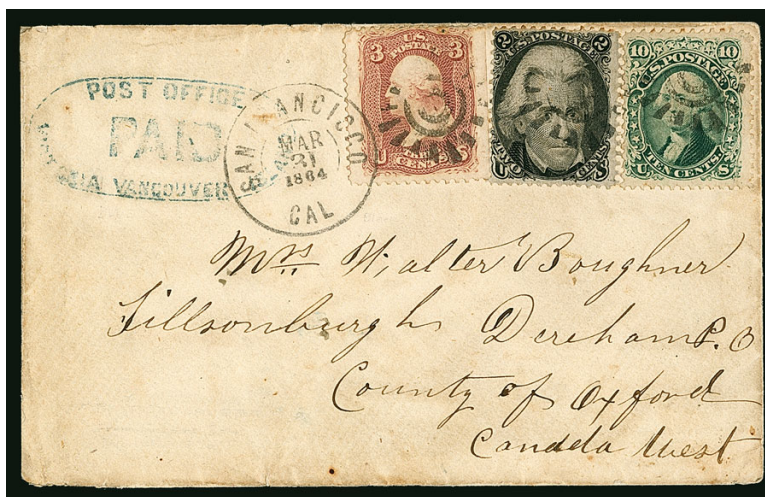 POST OFFICE
PAID
VANCOUVER
SAN FRANCISCO
MAR
31
1864
CAL
3 3
U.S.
POSTAGE
U S
CENTS
2 2
U.S. POSTAGE
U S
10 10
U.S. POSTAGE
U S
TEN CENTS
Mrs Walter Boughner
Tillsonburgh Dereham P.O
County of Oxford
Canada West